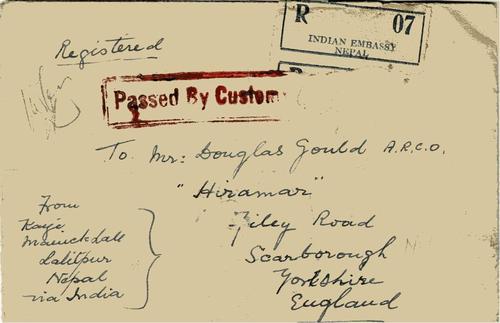 R 07
INDIAN EMBASSY
NEPAL
R
Registered
Passed By Custom
To Mr: Douglas Gould A.R.C.O.
"Hiramar"
Filey Road
Scarborough
Yorkshire
England
From
Lalitpur
Nepal
via India